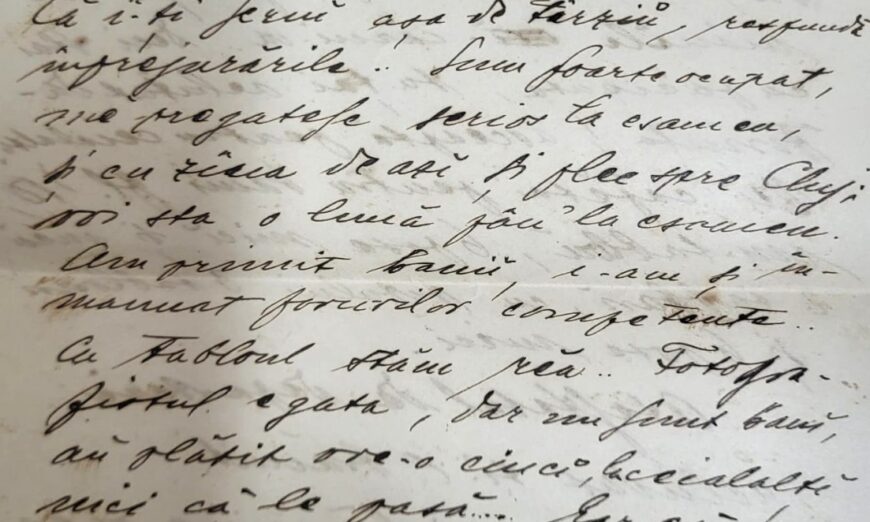 Că î-ți scriu așa de târziu, respund
împrejurările! Sum foarte ocupat,
mĕ pregatesc serios la esamen,
și cu ziua de azi și plec spre Cluj,
voi sta o lună pân' la esamen.
Am primit banii, i-am și în-
manuat forurilor competente..
Cu tabloul stăm rĕu.. Fotogra-
fistul e gata, dar nu sunt bani,
aŭ plătit vre-o cinci, la ceialalți
nici că le pasă....